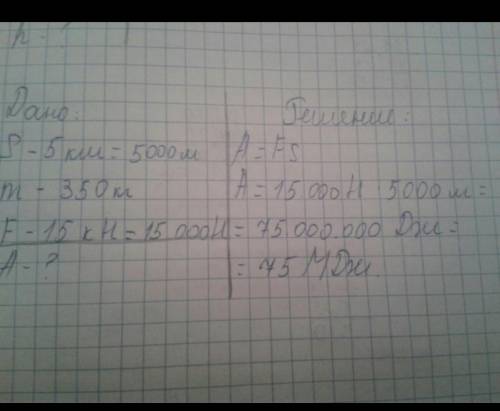 h - ?
Дано:
Решение:
S - 5 км = 5000 м
A = Fs
m - 350 м
A = 15 000 Н 5000 м =
F - 15 кН = 15 000 Н
= 75 000.000 Дж =
A - ?
= 75 МДж.